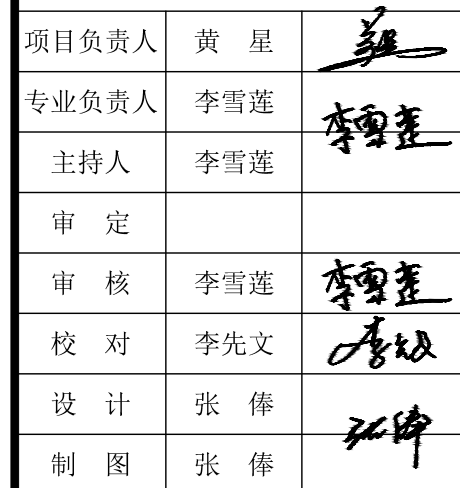 项目负责人 黄 星 黄星
专业负责人 李雪莲 李雪莲
主持人 李雪莲
审 定
审 核 李雪莲 李雪莲
校 对 李先文 李先文
设 计 张 俸 张俸
制 图 张 俸